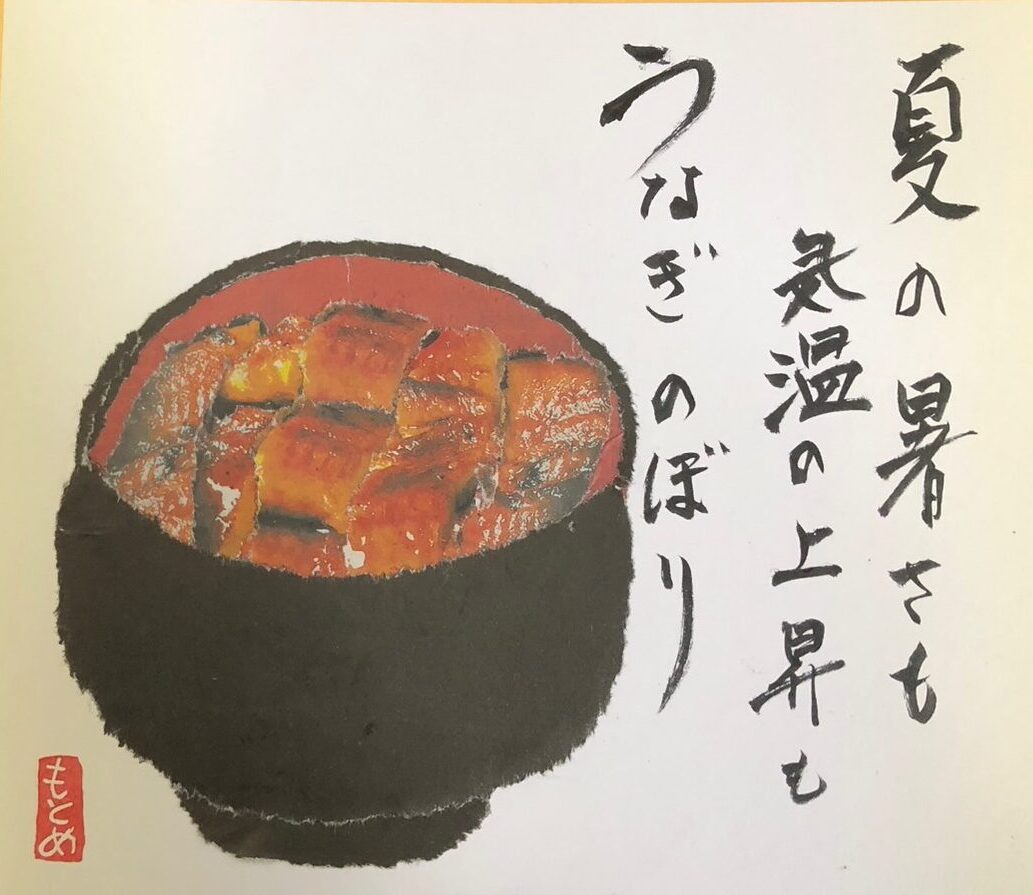 夏の暑さも
気温の上昇も
うなぎのぼり
もとめ